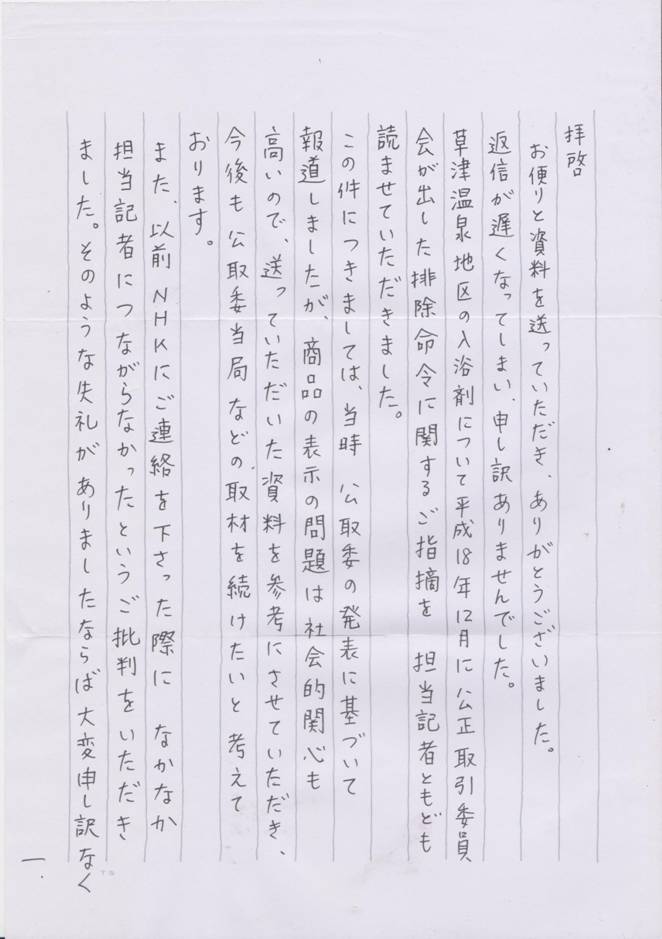 拝啓
お便りと資料を送っていただき、ありがとうございました。
返信が遅くなってしまい、申し訳ありませんでした。
草津温泉地区の入浴剤について平成18年12月に公正取引委員
会が出した排除命令に関するご指摘を 担当記者ともども
読ませていただきました。
この件につきましては、当時 公取委の発表に基づいて
報道しましたが、商品の表示の問題は社会的関心も
高いので、送っていただいた資料を参考にさせていただき、
今後も公取委当局などの取材を続けたいと考えて
おります。
また、以前NHKにご連絡を下さった際に なかなか
担当記者につながらなかったというご批判をいただき
ました。そのような失礼がありましたならば大変申し訳なく
一